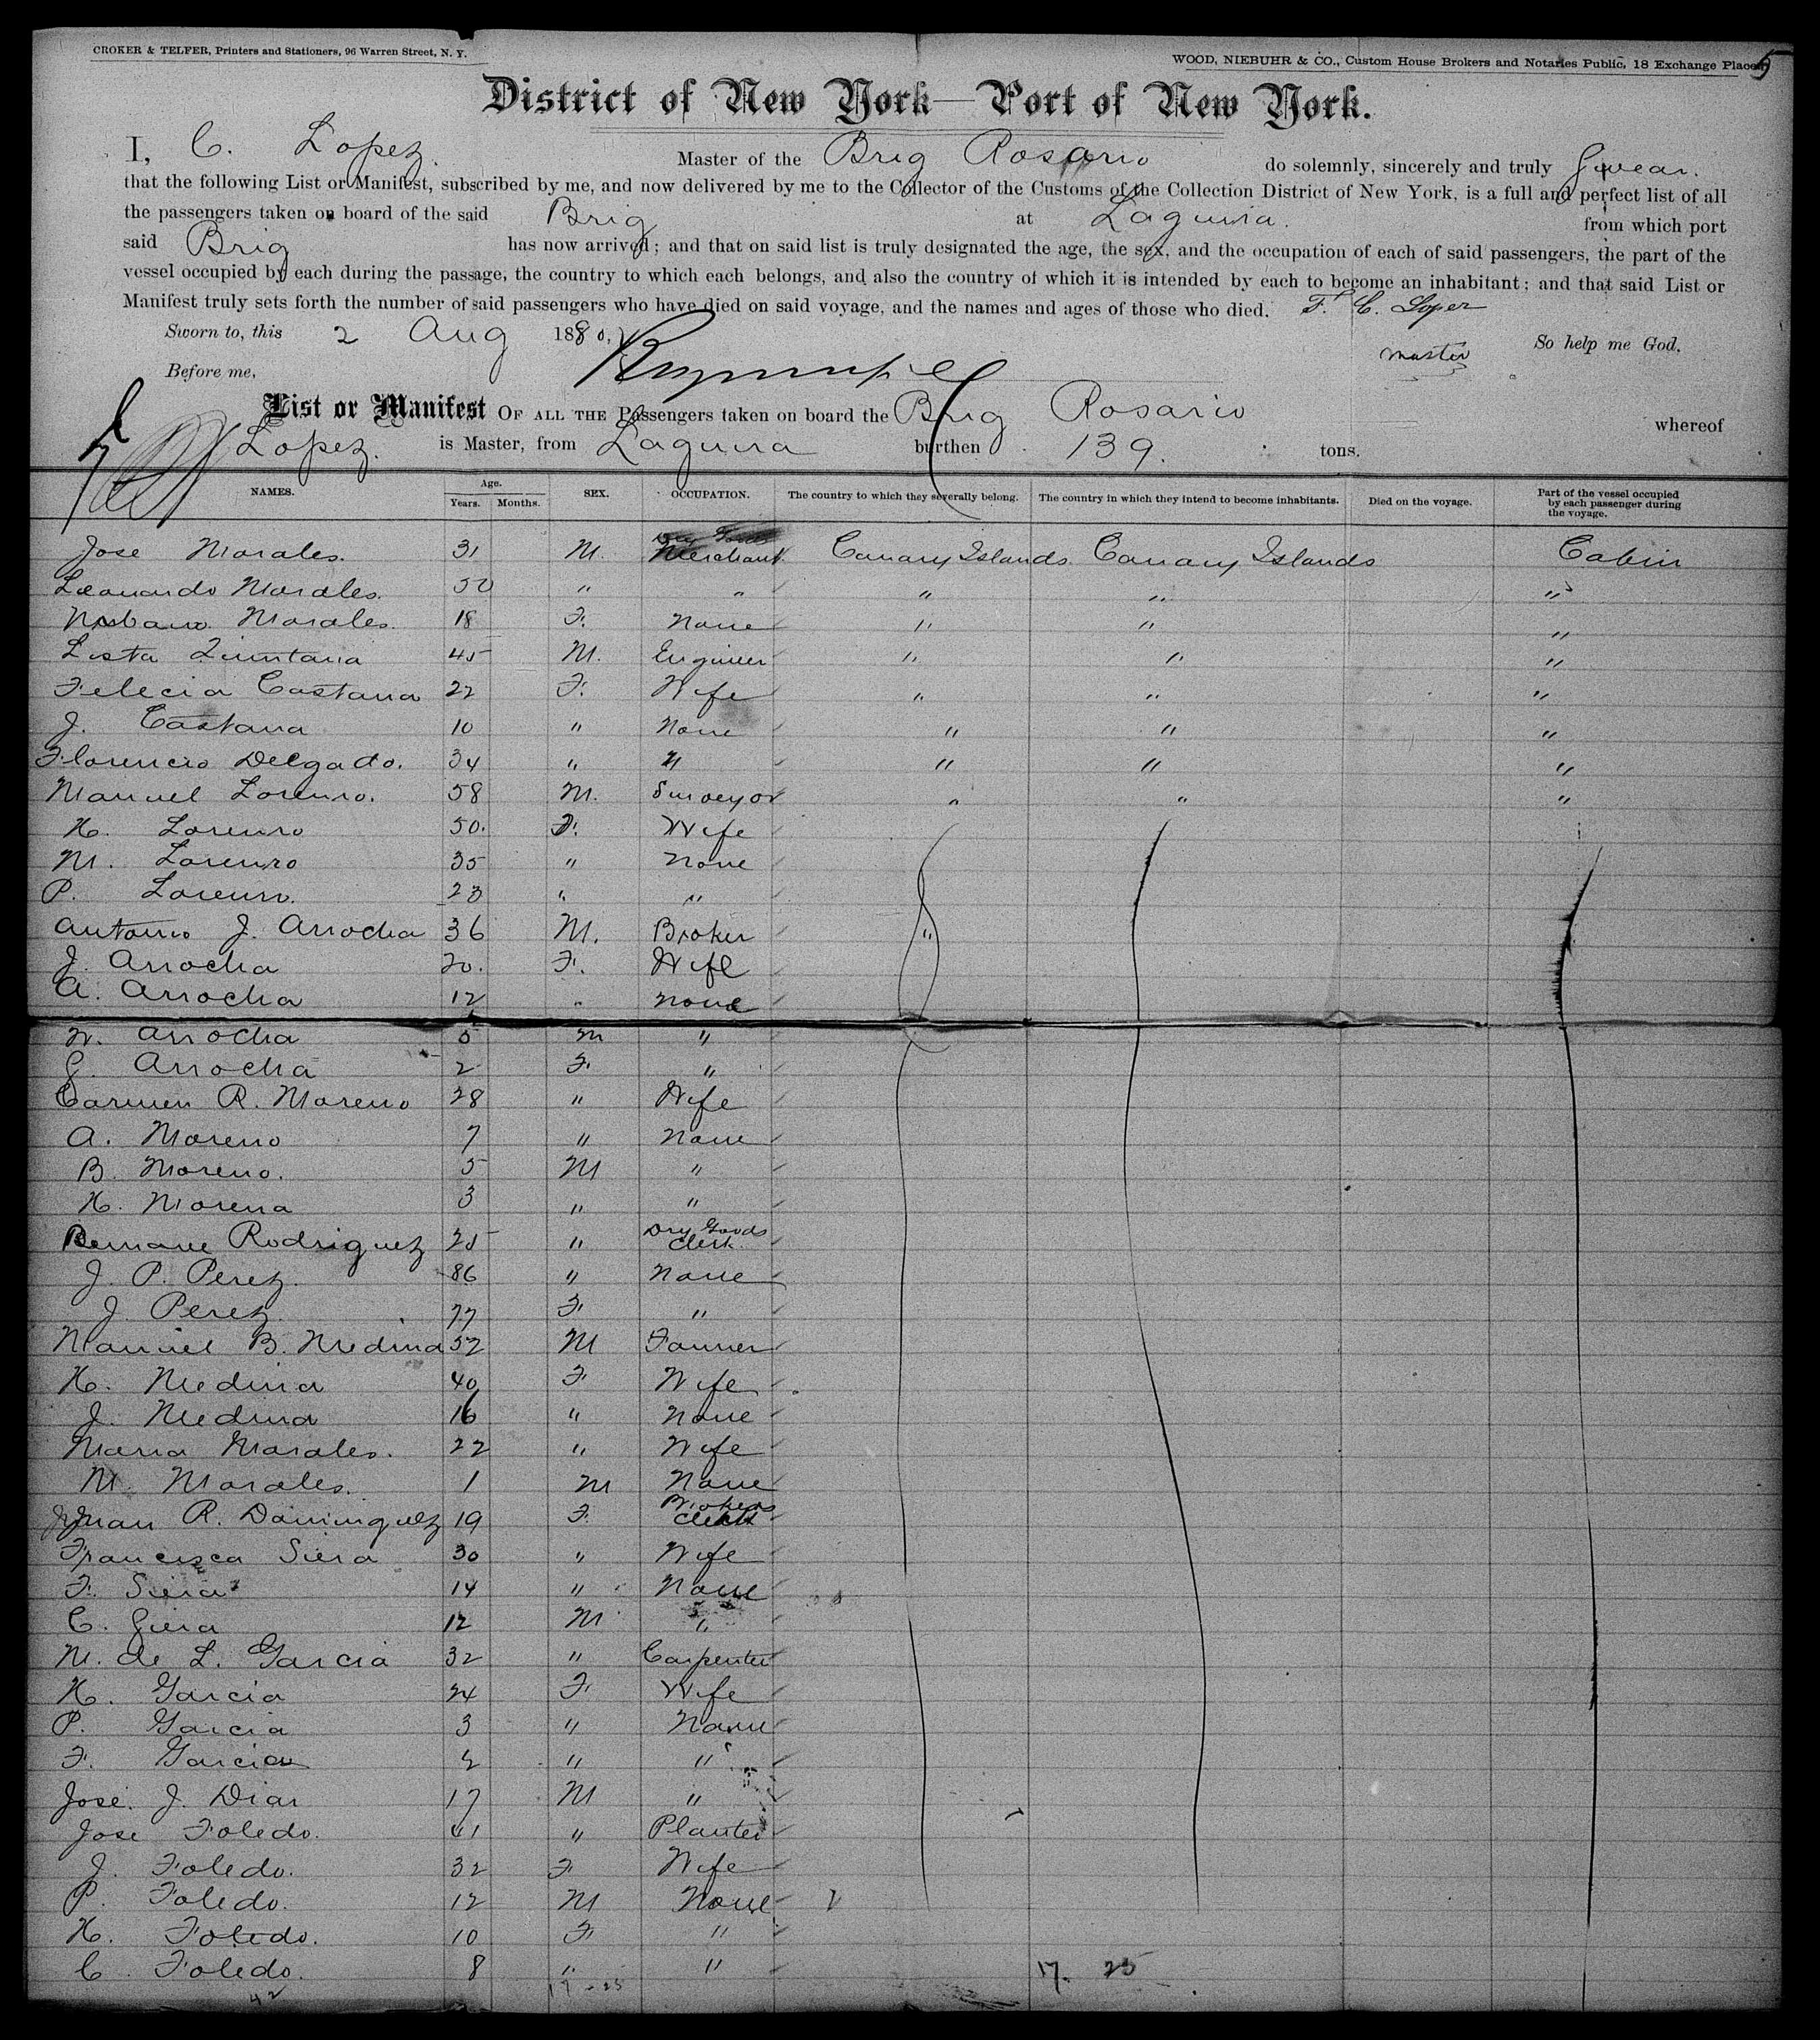 CROKER & TELFER, Printers and Stationers, 96 Warren Street, N. Y.
WOOD, NIEBUHR & CO., Custom House Brokers and Notaries Public, 18 Exchange Place
5
District of New York—Port of New York.
I, C. Lopez. Master of the Brig Rosario do solemnly, sincerely and truly Swear.
that the following List or Manifest, subscribed by me, and now delivered by me to the Collector of the Customs of the Collection District of New York, is a full and perfect list of all
the passengers taken on board of the said Brig at Laguira. from which port
said Brig has now arrived; and that on said list is truly designated the age, the sex, and the occupation of each of said passengers, the part of the
vessel occupied by each during the passage, the country to which each belongs, and also the country of which it is intended by each to become an inhabitant; and that said List or
Manifest truly sets forth the number of said passengers who have died on said voyage, and the names and ages of those who died. F. C. Lopez
Sworn to, this 2 Aug 1880, master So help me God.
Before me,
List or Manifest OF ALL THE Passengers taken on board the Brig Rosario whereof
Lopez. is Master, from Laguira burthen 139. tons.
NAMES. Age. Years. Months. SEX. OCCUPATION. The country to which they severally belong. The country in which they intend to become inhabitants. Died on the voyage. Part of the vessel occupied by each passenger during the voyage.
Jose Morales. 31 M. Merchant Canary Islands Canary Islands Cabin
Leonardo Morales. 50 " " " " "
Morales. 18 F. None " " "
Quintana 45 M. Engineer " " "
Felecia Castana 22 F. Wife " " "
J. Castana 10 " None " " "
Florencio Delgado. 34 " " " " "
Manuel Lorenzo. 58 M. Surveyor " " "
H. Lorenzo 50. F. Wife
M. Lorenzo 35 " None
P. Lorenzo. 23 " "
Antonio J. Arrocha 36 M. Broker "
J. Arrocha 20. F. Wife
A. Arrocha 12 " None
N. Arrocha 5 M "
G. Arrocha 2 F. "
Carmen R. Moreno 28 " Wife
A. Moreno 7 " None
B. Moreno. 5 M "
H. Morena 3 " "
Rodriguez 25 " Dry Goods Clerk
J. P. Perez. 86 " None
J. Perez. 77 F. "
Manuel B. Medina 52 M Farmer
H. Medina 40 F Wife
J. Medina 16 " None
Maria Morales. 22 " Wife
M. Morales. 1 M None
Juan R. Dominguez 19 F. Brokers Clerk
Francisca Siera 30 " Wife
F. Siera 14 " None
C. Siera 12 M "
M. de L. Garcia 32 " Carpenter
H. Garcia 24 F Wife
P. Garcia 3 " None
F. Garcia 2 " "
Jose. J. Diaz 17 M "
Jose Toledo. 41 " Planter
J. Toledo. 32 F Wife
P. Toledo. 12 M None
H. Toledo. 10 F "
C. Toledo. 8 " " 17. 25
42 17-25